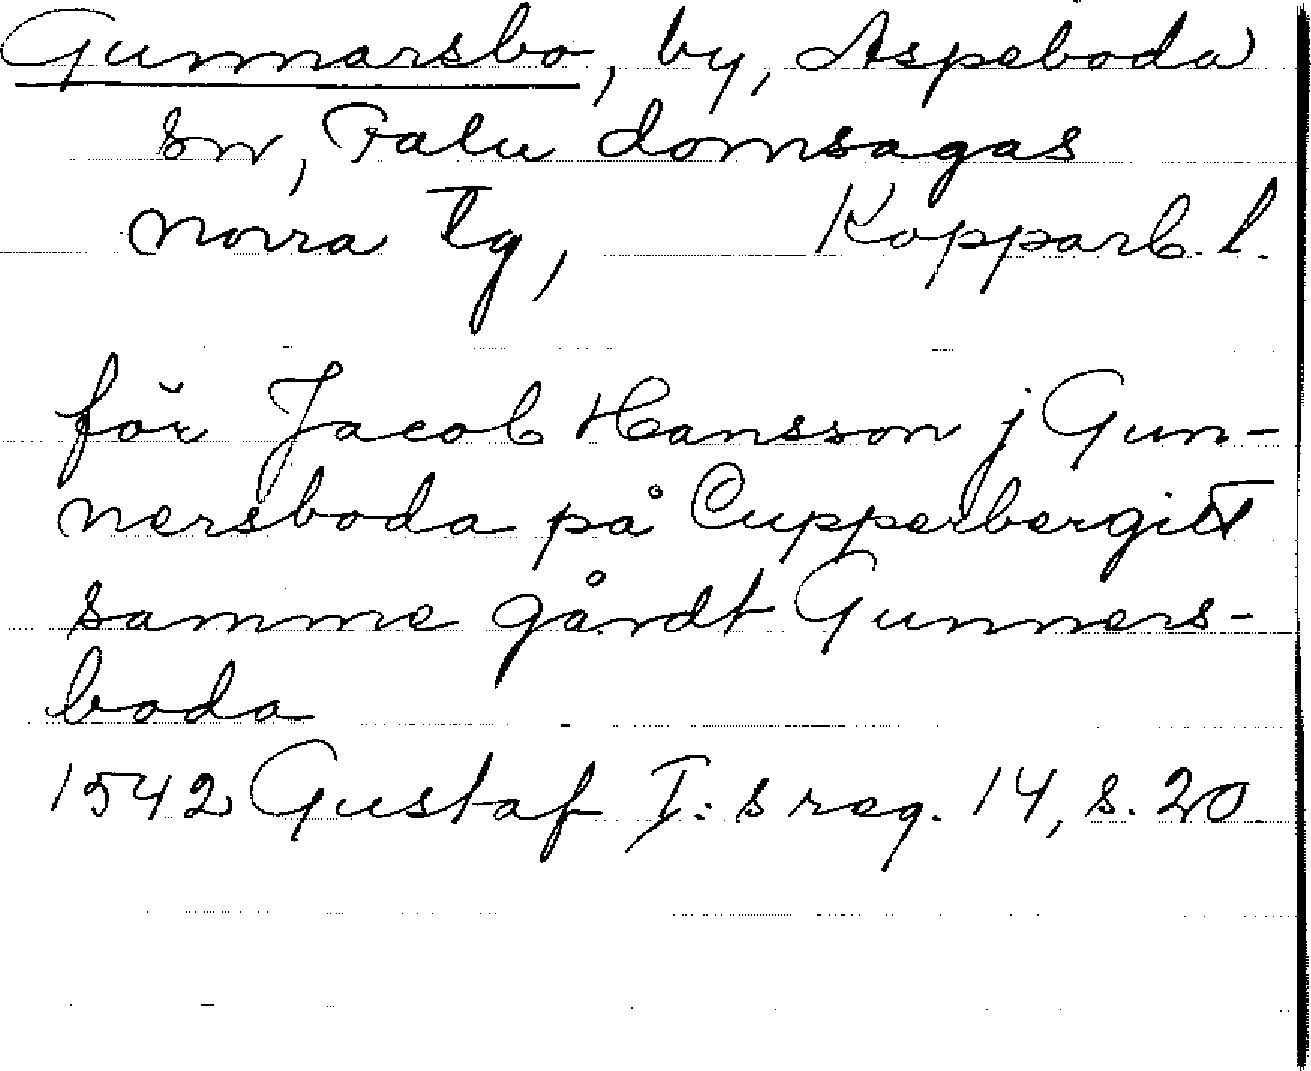 Gunnarsbo, by, Aspeboda
sn, Falu domsagas
norra tg, Kopparb. l.
för Jacob Hansson j Gun-
nersboda på Cupperbergitt
samme gårdt Gunners-
boda
1542 Gustaf I:s reg. 14, s. 20.